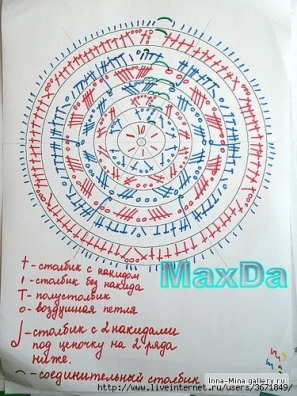 MaxDa
† - столбик с накидом
ı - столбик без накида
Т - полустолбик
о - воздушная петля
∫ - столбик с 2 накидами
под цепочку на 2 ряда
ниже.
⌒ - соединительный столбик
Inna-Mina gallery.ru
www.liveinternet.ru/users/3671849/